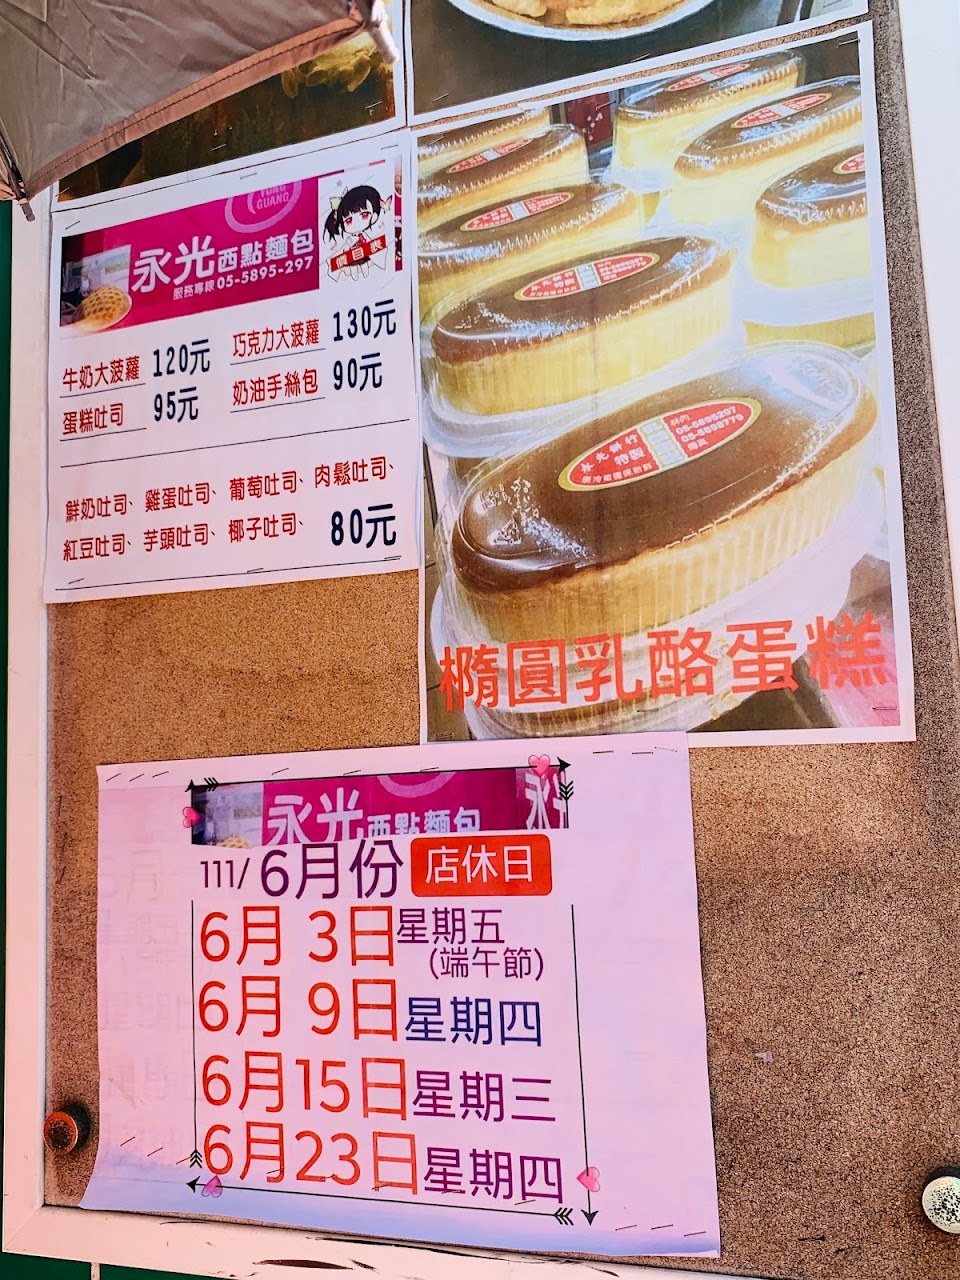 YUNG
GUANG
永光西點麵包
服務專線 05-5895-297
價目表
牛奶大菠蘿 120元 巧克力大菠蘿 130元
蛋糕吐司 95元 奶油手絲包 90元
鮮奶吐司、雞蛋吐司、葡萄吐司、肉鬆吐司、
紅豆吐司、芋頭吐司、椰子吐司、 80元
永光餅行
特製
林內
05-5895297
05-5898779
橢圓乳酪蛋糕
永光西點麵包
永光
111/6月份 店休日
6月 3日星期五
(端午節)
6月 9日星期四
6月15日星期三
6月23日星期四